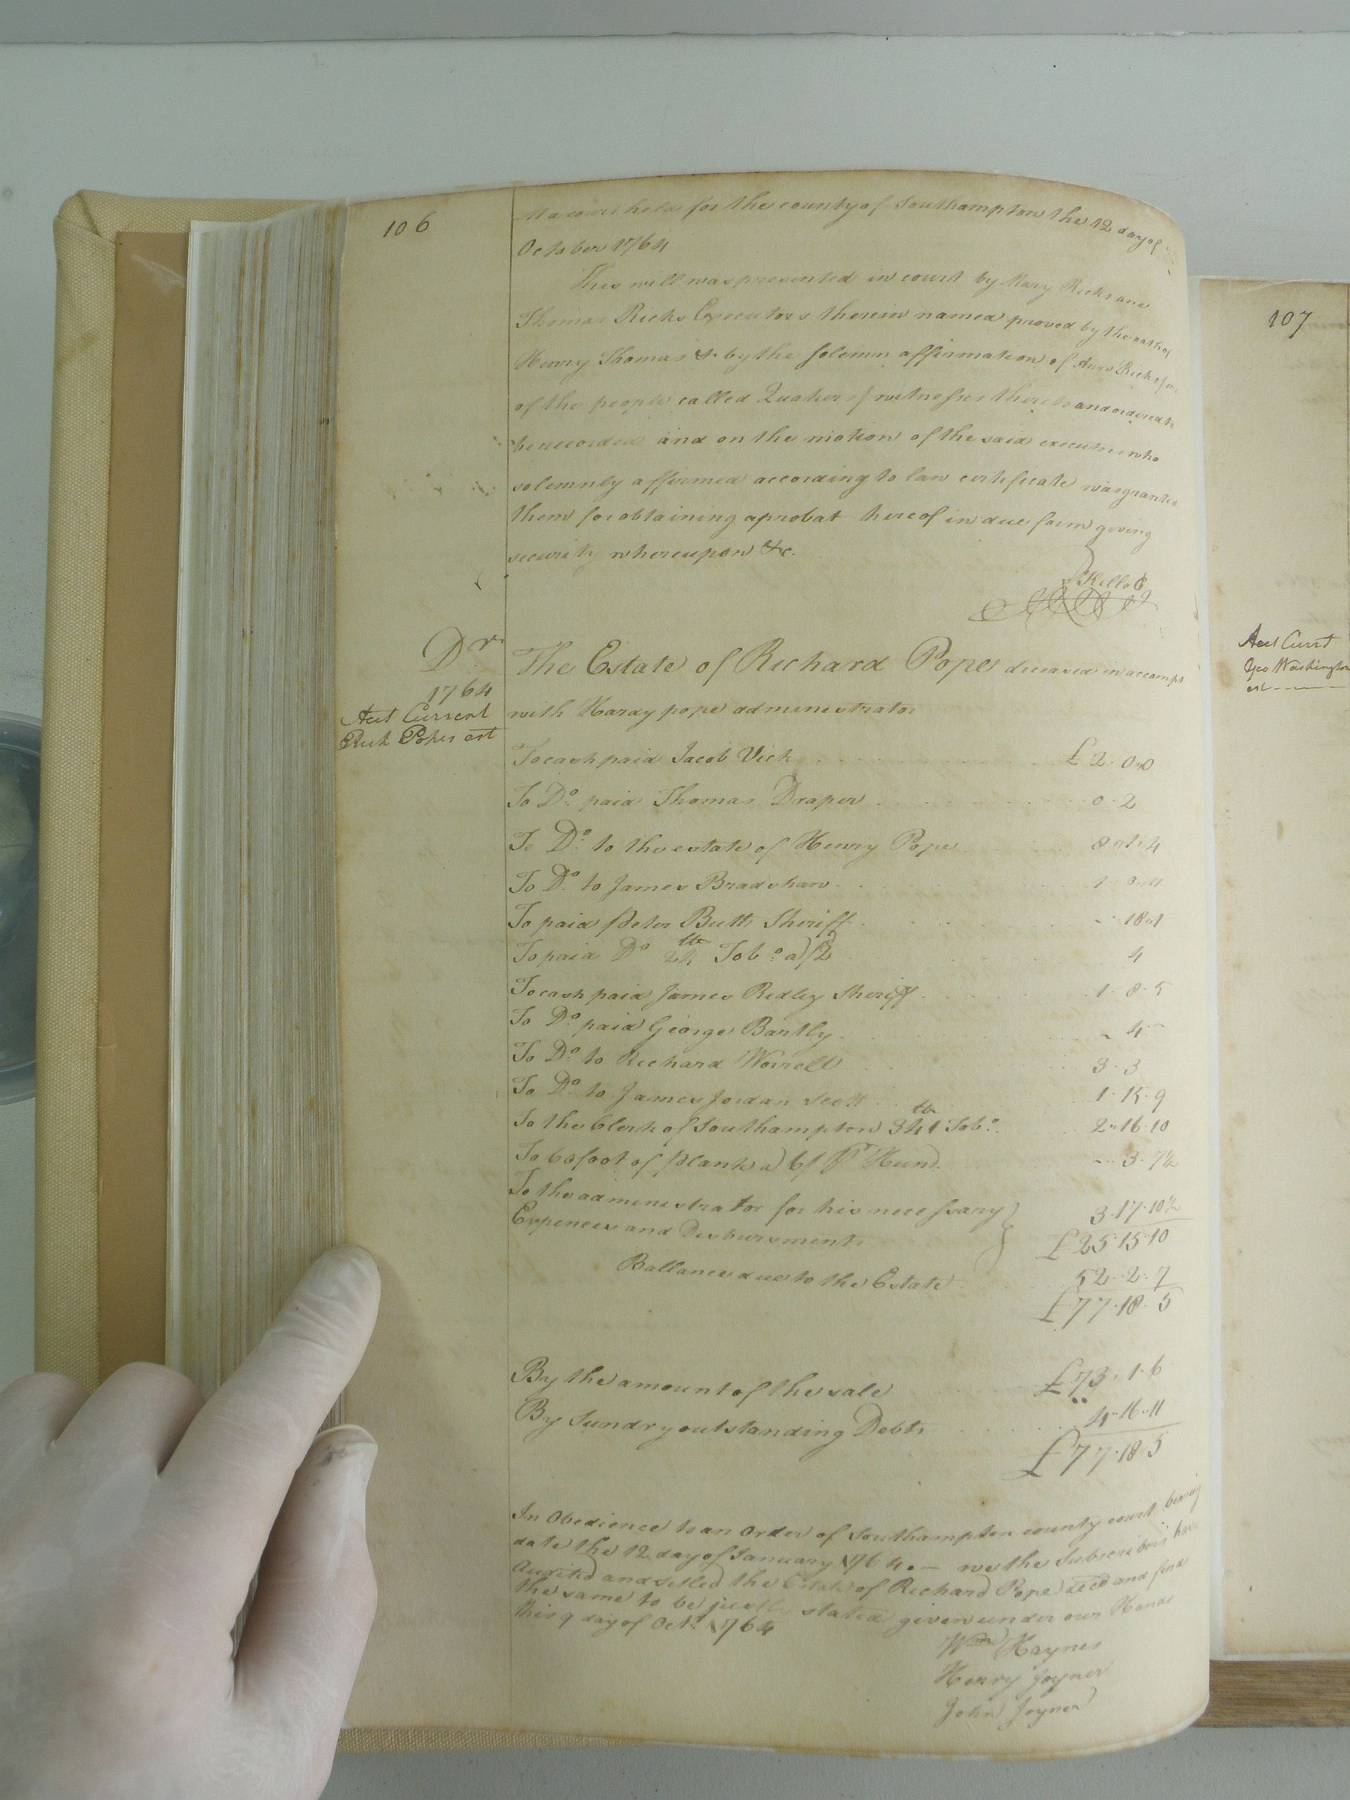 106
At a court held for the county of Southampton the 12 day of
October 1764
This will was presented in court by Mary Ricks and
Thomas Ricks Executors therein named proved by the oath of
Henry Thomas & by the solemn affirmation of Ann Ricks
of the people called Quakers witnesses thereto and ordered to
be recorded and on the motion of the said executors who
solemnly affirmed according to law certificate was granted
them for obtaining a probat hereof in due form giving
security whereupon &c.
Dr
The Estate of Richard Pope deceased in accompt
1764
with Hardy pope administrator
Acct Current
Rich Popes est
To cash paid Jacob Vick £2.0.0
To Do. paid Thomas Draper 0.2
To Do. to the estate of Henry Pope
To Do. to James Bradshaw
To paid Peter Butts Sheriff
To paid Do 24 lb Tobo. a 4
To cash paid James Ridley Sheriff 1.8.5
To Do. paid George Bartly 4
To Do. to Richard Worrell 3.3
To Do. to James Jordan Scott 1.15.9
To the Clerk of Southampton 341 lb Tobo. 2.16.10
To 60 foot of plank a 6/ Pr Hund. 3.7½
To the administrator for his necessary
Expences and Disbursments 3.17.10½
£25.15.10
Ballance due to the Estate 52.2.7
£77.18.5
By the amount of the sale £73.1.6
By Sundry outstanding Debts 4.16.11
£77.18.5
In Obedience to an Order of Southampton county court bearing
date the 12 day of January 1764. we the Subscribers have
Audited and settled the Estate of Richard Pope decd and find
the same to be justly stated given under our Hands
this 9 day of Octr. 1764
Wm Haynes
Henry Joyner
John Joyner
107
Acct Curret
Geo Washington
est